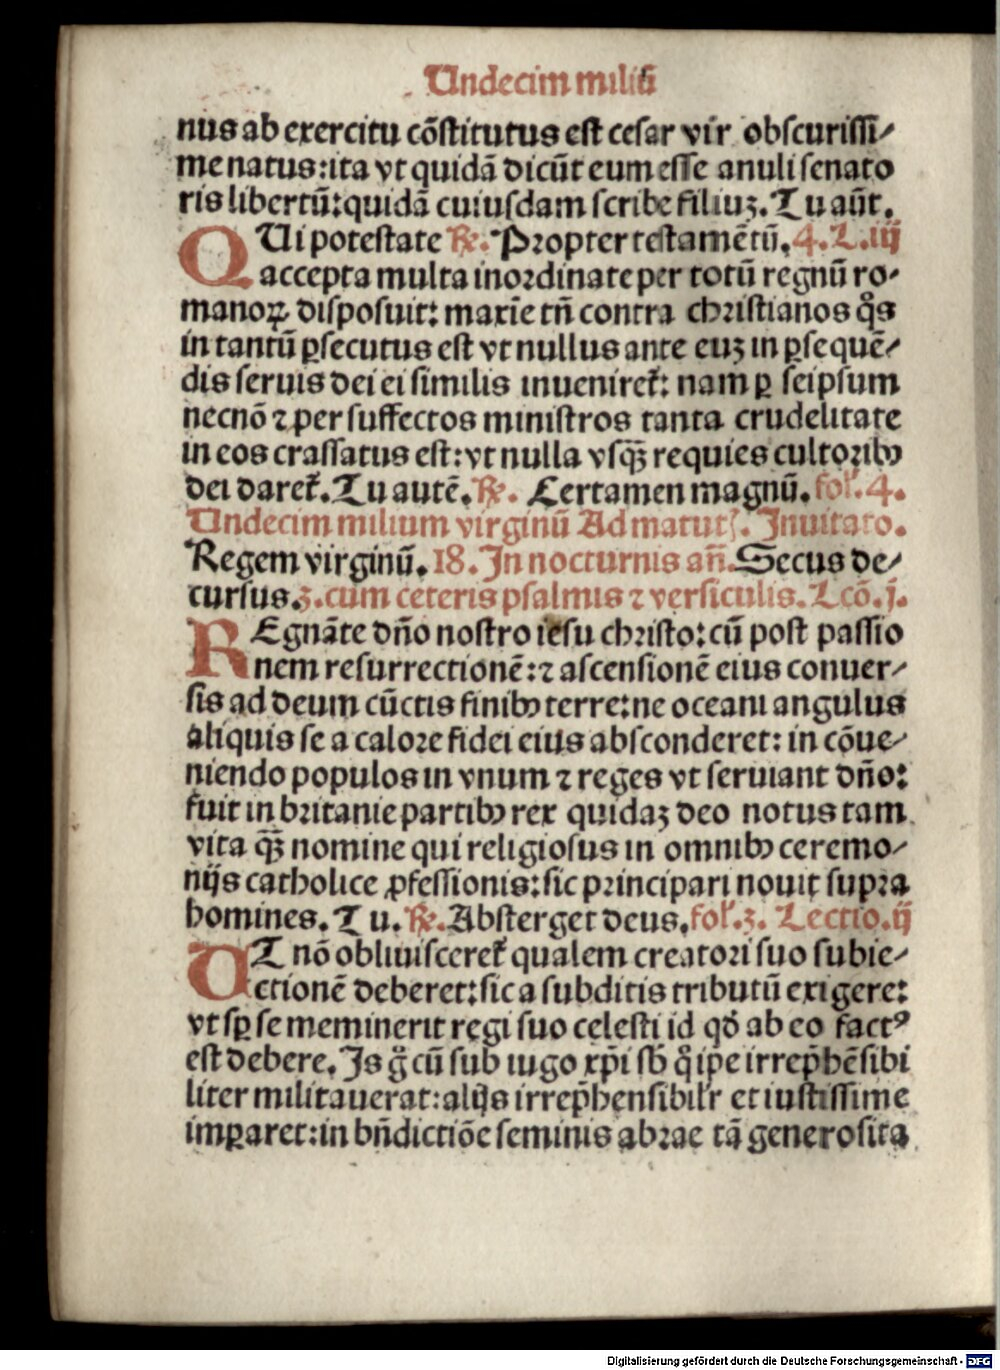 Undecim miliũ
nus ab exercitu cõstitutus est cesar vir obscurissi/
me natus: ita vt quidã dicũt eum esse anuli senato
ris libertũ: quidã cuiusdam scribe filiuꝫ. Tu aũt.
QUi potestate ℞. Propter testamẽtũ. 4. L. iij
accepta multa inordinate per totũ regnũ ro-
manoꝝ disposuit: maxĩe tñ contra christianos q̊s
in tantũ ꝑsecutus est vt nullus ante euꝫ in ꝑsequẽ/
dis seruis dei ei similis inuenireť: nam ꝑ seipsum
necnõ ⁊ per suffectos ministros tanta crudelitate
in eos crassatus est: vt nulla vsqꝫ̃ requies cultoribꝰ
dei dareť. Tu autẽ. ℞. Certamen magnũ. fol. 4.
Undecim milium virginũ Ad matutꝭ. Inuitato.
Regem virginũ. 18. In nocturnis añ. Secus de/
cursus. 3. cum ceteris psalmis ⁊ versiculis. Lcõ. j.
REgnãte dño nostro iesu christo: cũ post passio
nem resurrectionẽ: ⁊ ascensionẽ eius conuer/
sis ad deum cũctis finibꝰ terre: ne oceani angulus
aliquis se a calore fidei eius absconderet: in cõue/
niendo populos in vnum ⁊ reges vt seruiant dño:
fuit in britanie partibꝰ rex quidaꝫ deo notus tam
vita qꝫ̃ nomine qui religiosus in omnibꝰ ceremo/
nijs catholice ꝓfessionis: sic principari nouit supra
homines. Tu. ℞. Absterget deus. fol. 3. Lectio. ij
UT nõ obliuiscereť qualem creatori suo subie/
ctionẽ deberet: sic a subditis tributũ exigere:
vt sꝑ se meminerit regi suo celesti id qđ ab eo factꝰ
est debere. Is g̊ cũ sub iugo xp̃i sb̃ q̊ ip̃e irrep̃hẽsibi
liter militauerat: alijs irrep̃hensibilr̃ et iustissime
imꝑaret: in bñdictiõe seminis abrae tã generosita
Digitalisierung gefördert durch die Deutsche Forschungsgemeinschaft - DFG